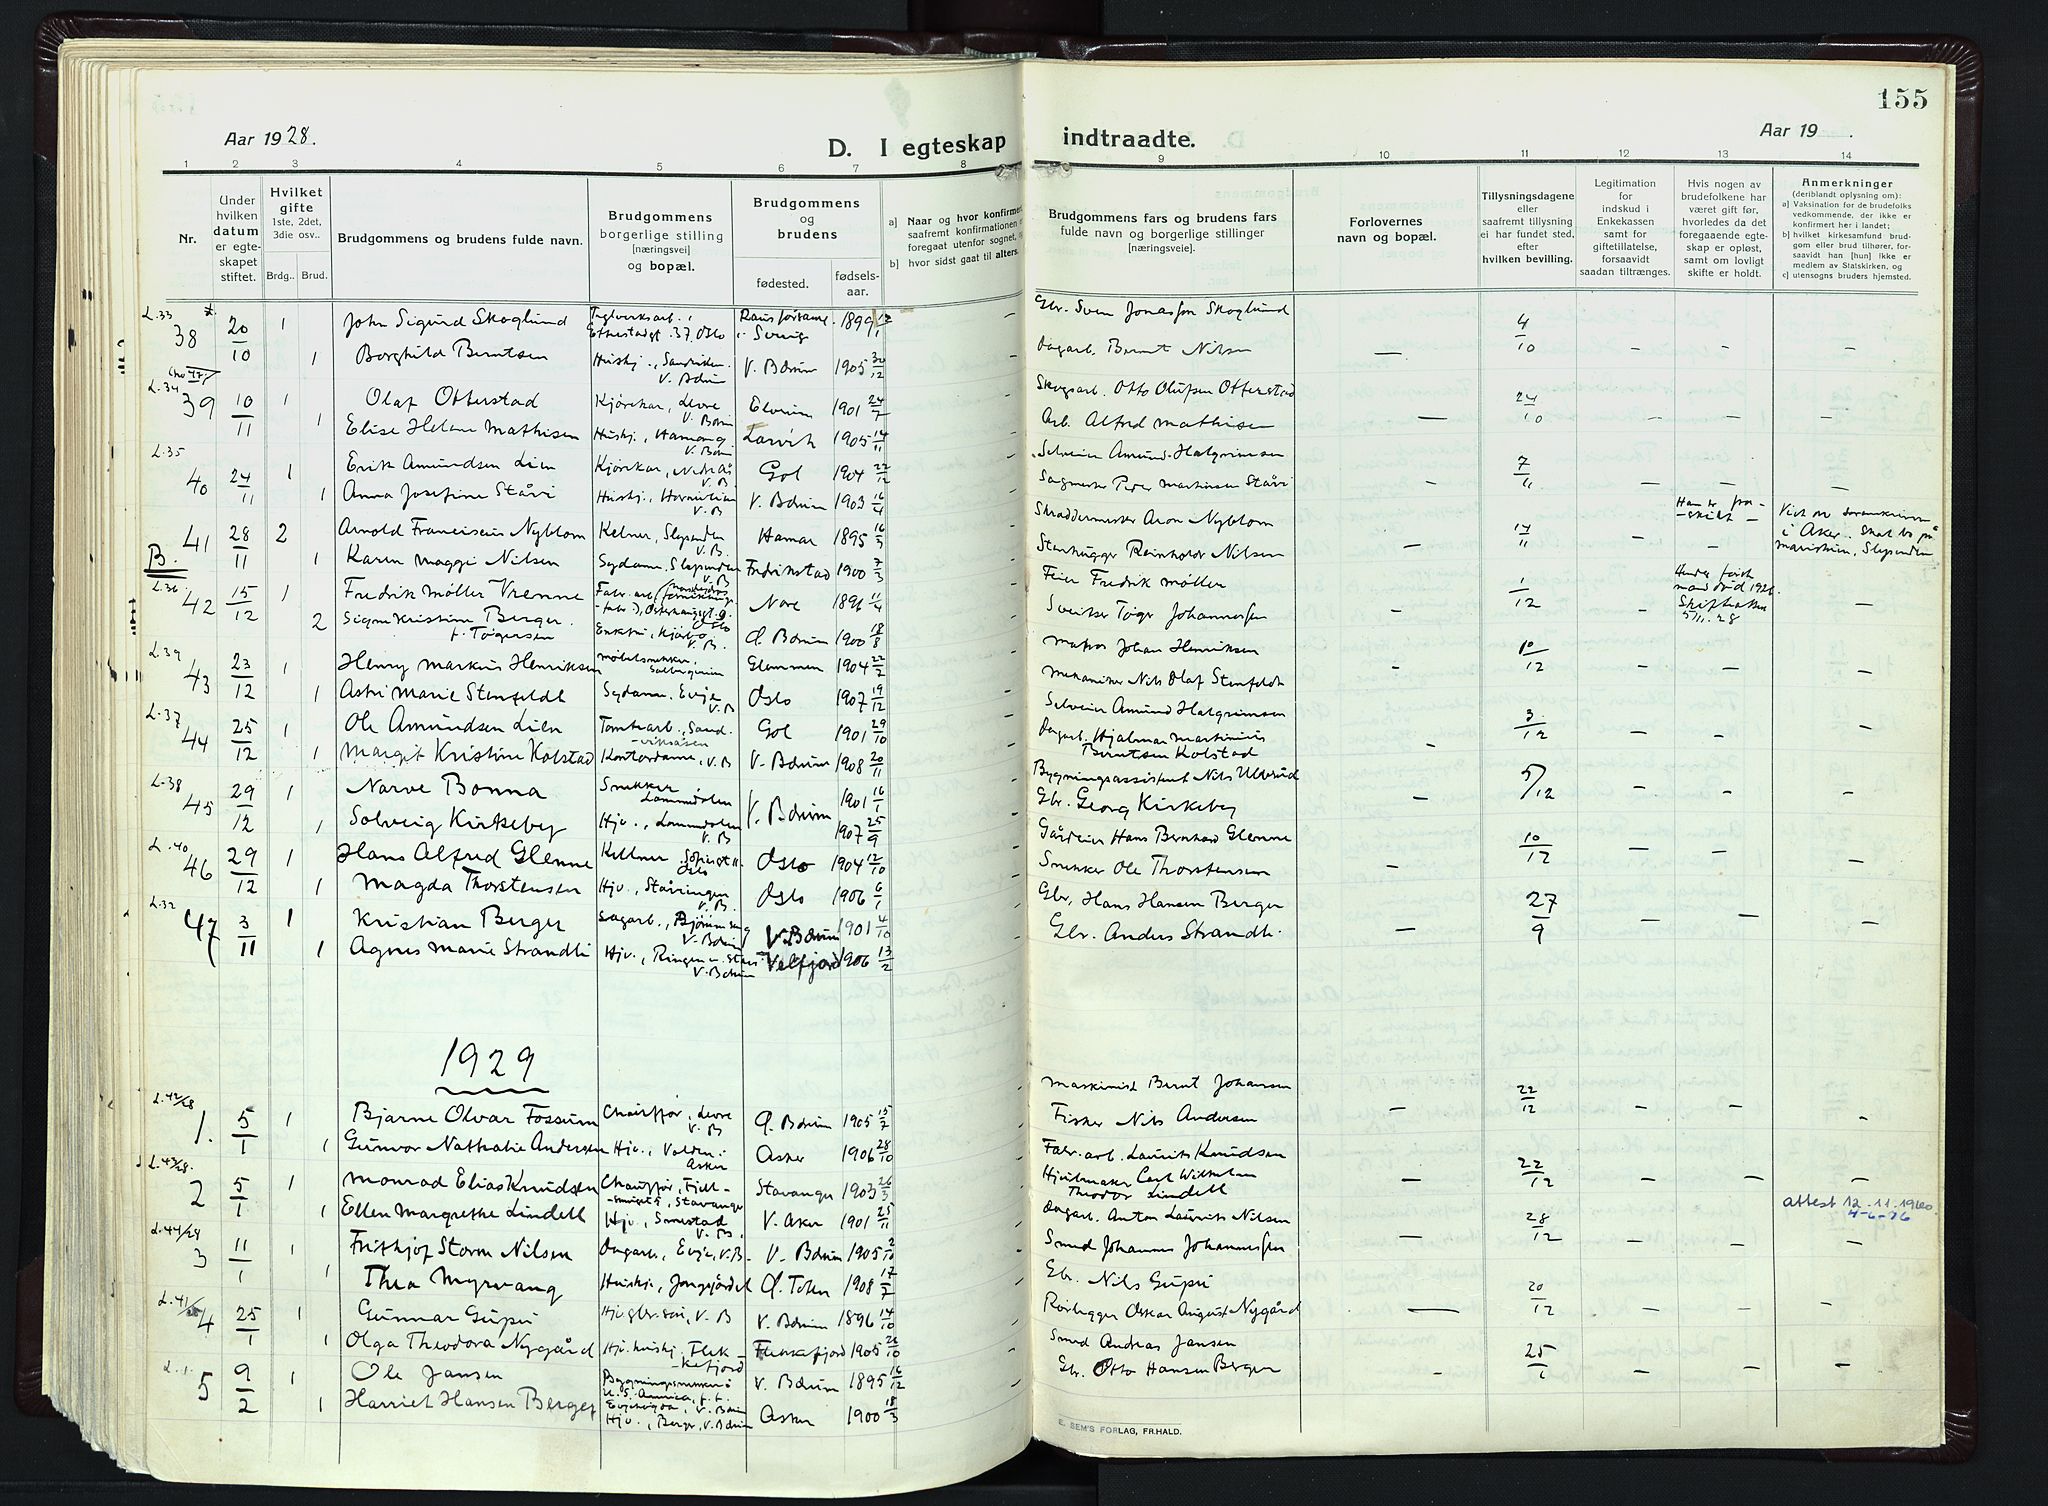 155
Aar 1928.
D. I egteskap indtraadte.
Aar 19 .
1 2 3 4 5 6 7 8 9 10 11 12 13 14
Nr.
Under
hvilken
datum
er egte-
skapet
stiftet.
Hvilket
gifte
1ste, 2det,
3die osv..
Brdg.. Brud.
Brudgommens og brudens fulde navn.
Brudgommens
borgerlige stilling
[næringsvei]
og bopæl.
Brudgommens
og
brudens
fødested.
fødsels-
aar.
a) Naar og hvor konfirmert
saafremt konfirmationen
foregaat utenfor sognet,
b) hvor sidst gaat til alters.
Brudgommens fars og brudens fars
fulde navn og borgerlige stillinger
[næringsveie].
Forlovernes
navn og bopæl.
Tillysningsdagene
eller
saafremt tillysning
ei har fundet sted,
efter
hvilken bevilling.
Legitimation
for
indskud i
Enkekassen
samt for
giftetillatelse,
forsaavidt
saadan tiltrænges.
Hvis nogen av
brudefolkene har
været gift før,
hvorledes da det
foregaaende egte-
skap er opløst,
samt om lovligt
skifte er holdt.
Anmerkninger
(deriblandt oplysning om):
a) Vaksination for de brudefolks
vedkommende, der ikke er
konfirmert her i landet;
b) hvilket kirkesamfund brud-
gom eller brud tilhører, for-
saavidt han [hun] ikke er
medlem av Statskirken, og
c) utensogns bruders hjemsted.
L.33 38 20/10 1 John Sigurd Skoglund 1899 Gbr. Sven Jonasson Skoglund 4/10
1 Borghild Berntsen Hushj., Sandviken. V. Bærum V. Bærum 1905 30/12 Dagarb. Bernt Nilsen
L.34 39 10/11 1 Olaf Otterstad Kjørekar, Levre V. Bærum Elverum 1901 24/7 Skogsarb. Otto Olufsen Otterstad 24/10
1 Elise Helene Mathisen Hushj., Hamang V. Bærum Larvik 1905 14/11 Arb. Alfred Mathisen
L.35 40 24/11 1 Erik Amundsen Lien Kjørekar, V. B Gol 1904 22/12 Selveier Amund Halgrimsen 7/11
1 Anna Josefine Støvi Hushj. V. B V. Bærum 1903 16/4 Peder Martinsen Støvi
41 28/11 2 Arnold Franciscus Nyblom Kelner, Slependen V. B. Hamar 1895 16/3 Skræddermester Aron Nyblom 14/11 Han er fra-
skilt -
B. 1 Karen Maggi Nilsen Sydame, Slependen V. B Fredrikstad 1900 7/3 Stenhugger Reinholdt Nilsen
L.36 42 15/12 1 Fredrik Møller Vrenne Nore 1896 11/4 Feier Fredrik Møller 1/12
2 Signe Kristine Berger f. Tøgersen Enkefru V. B. Ø. Bærum 1900 18/8 Sveitser Tøger Johannessen
L.39 43 23/12 1 Henry Markus Henriksen Møbelsnekker Glemmen 1904 22/2 Matros Johan Henriksen 10/12
1 Astri Marie Stenfeldt Sydame, Evje V. B Oslo 1907 19/12 Mekaniker Nils Olaf Stenfeldt
L.37 44 25/12 1 Ole Amundsen Lien Tomtearb., Sand-
viksåsen Gol 1901 29/10 Selveier Amund Halgrimsen 3/12
1 Margit Kristine Kolstad Kontordame, V. B V. Bærum 1908 20/11 Dagarb. Hjalmar Martinius
Berntsen Kolstad
L.38 45 29/12 1 Narve Bonna Snekker, Lommedalen V. Bærum 1901 16/1 Bygningsassistent Nils Ulverud 5/12
1 Solveig Kirkeby Hjv., Lommedalen V. B 1907 25/9 Gbr. Georg Kirkeby
L.40 46 29/12 1 Hans Alfred Glenne Kellner Oslo Oslo 1904 12/10 Gårdeier Hans Bernhard Glenne 10/12
1 Magda Thorstensen Hjv., Støvringen V. B. Oslo 1906 6/1 Snekker Ole Thorstensen
L.32 47 3/11 1 Kristian Berger Sagarb., V. Bærum V. Bærum 1901 4/10 Gbr. Hans Hansen Berger 27/9
1 Agnes Marie Strandli Hjv., V. Bærum Velfjord 1906 13/2 Gbr. Anders Strandli
1929
L.42/28 1. 5/1 1 Bjarne Olvar Fossum Chauffør, Levre V. B Ø. Bærum 1905 15/2 Maskinist Bernt Johansen 22/12
1 Gunvor Nathalie Andersen Hjv., Asker Asker 1906 28/10 Fisker Nils Andersen
L.43/28. 2 5/1 1 Monrad Elias Knudsen Chauffør, Stavanger Stavanger 1903 26/3 Fabr. arb. Laurits Knudsen 22/12
1 Ellen Margrethe Lindell Hjv., Smestad V. B. V. Aker 1901 25/11 Hjulmaker Carl Wilhelm
Theodor Lindell
attest 12.11.1960.
4-6-76
L.44/28 3 11/1 1 Frithjof Storm Nilsen Dagarb., Evje, V. B. V. Bærum 1905 2/10 Dagarb. Anton Laurits Nilsen 28/12
1 Thea Myrvang Hushj., Jongsjordet Ø. Toten 1908 17/7 Smed Johannes Johannessen
L.41/28 4 25/1 1 Gunnar Gupu V. B V. Bærum 1896 14/10 Gbr. Nils Gupu 20/12
1 Olga Theodora Nygård Flek-
kefjord Flekkefjord 1905 26/10 Rørlegger Oskar August Nygård
L.1. 5 9/2 1 Ole Jansen Bygningssnekker V. Bærum V. Bærum 1895 16/12 Smed Andreas Jansen 25/1
1 Harriet Hansen Berger Hjv., Berger, V. Bærum Asker 1900 18/3 Gbr. Otto Hansen Berger
E. SEM'S FORLAG, FR.HALD.